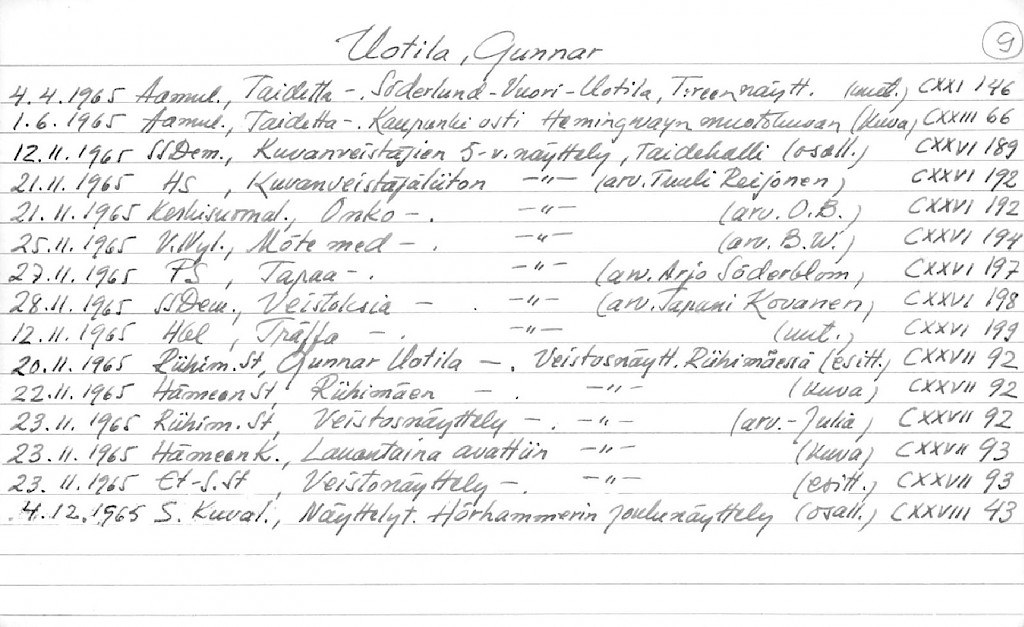 Uotila, Gunnar
9
4.4.1965 Aamul., Taidetta -. Söderlund-Vuori-Uotila, T:reen näytt. (uut.) CXXI 146
1.6.1965 Aamul., Taidetta -. Kaupunki osti Hemingwayn muotokuvan (kuva) CXXIII 66
12.11.1965 SSDem., Kuvanveistäjien 5-v. näyttely, Taidehalli (osall.) CXXVI 189
21.11.1965 HS, Kuvanveistäjäliiton -"- (arv. Tuuli Reijonen) CXXVI 192
21.11.1965 Keskisuomal., Onko -. -"- (arv. O.B.) CXXVI 192
25.11.1965 V.Nyl., Möte med -. -"- (arv. B.W.) CXXVI 194
27.11.1965 PS, Tapaa -. -"- (arv. Arjo Söderblom) CXXVI 197
28.11.1965 SSDem., Veistoksia - . -"- (arv. Tapani Kovanen) CXXVI 198
12.11.1965 Hbl, Träffa -. -"- (uut.) CXXVI 199
20.11.1965 Riihim.St, Gunnar Uotila -. Veistosnäytt. Riihimäessä (esitt.) CXXVII 92
22.11.1965 Hämeen St, Riihimäen - . -"- (kuva) CXXVII 92
23.11.1965 Riihim.St, Veistosnäyttely -. -"- (arv.-Julia) CXXVII 92
23.11.1965 Hämeen K., Lauantaina avattiin -"- (kuva) CXXVII 93
23.11.1965 Et-S.St, Veistonäyttely -. -"- (esitt.) CXXVII 93
4.12.1965 S. Kuval., Näyttelyt. Hörhammerin joulunäyttely (osall.) CXXVIII 43